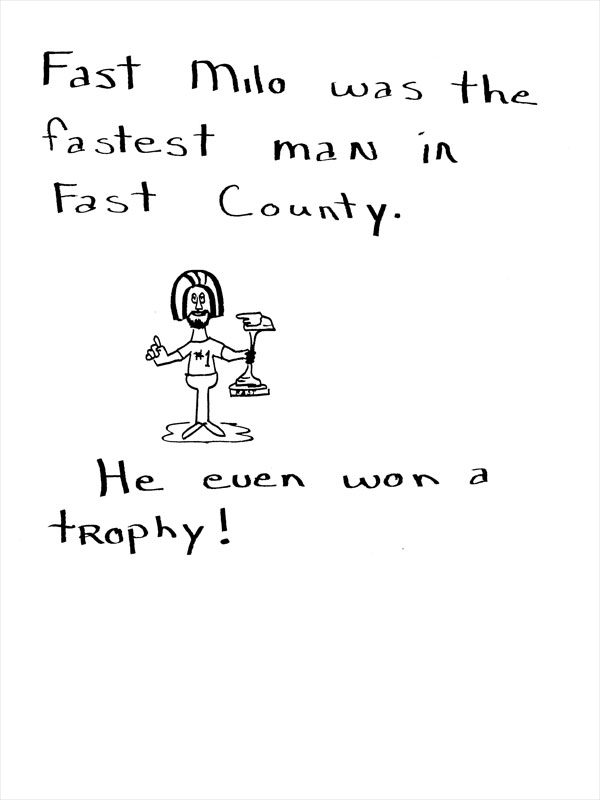 Fast Milo was the
fastest man in
Fast County.
#1
FAST
He even won a
trophy!